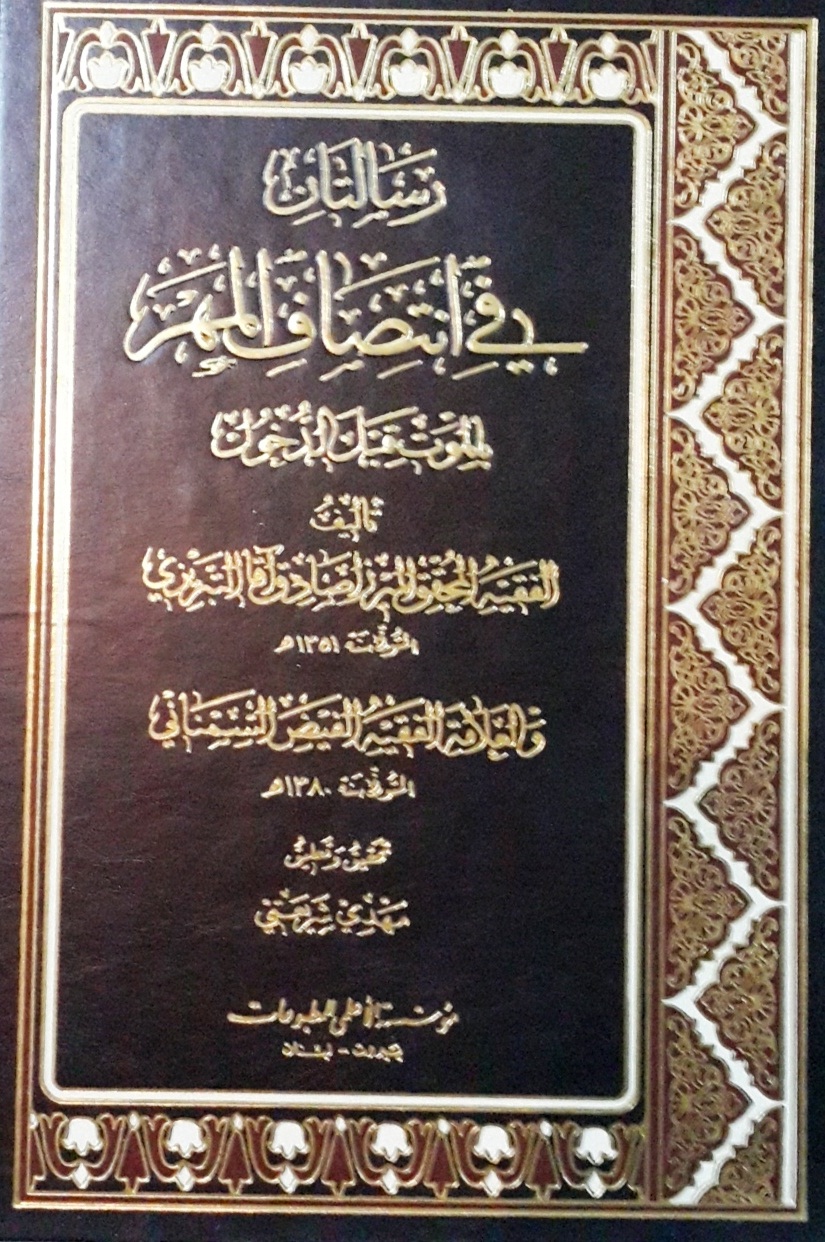 رسالتان
في انتصاف المهر
بالموت قبل الدخول
تأليف
الفقيه المحقق الميرزا صادق آقا التبريزي
المتوفى سنة ١٣٥١هـ
والعلامة الفقيه الفيض السمناني
المتوفى سنة ١٣٨٠هـ
تحقيق وتعليق
مهدي شريعتي
مؤسسة الأعلمي للمطبوعات
بيروت - لبنان